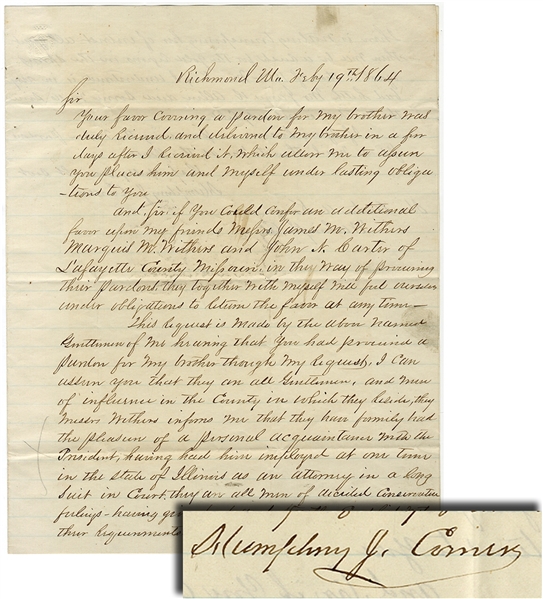 Richmond Mo. Feby 19th 1864
Sir
Your favor covering a pardon for my brother was
duly received. and delivered to my brother in a few
days after I received it, which allow me to assure
you places him and myself under lasting obliga
-tions to You
And, Sir, if You could confer an additional
favor upon my friends Messrs James W. Withers
Marquis W. Withers and John N. Carter of
Lafayette County Missouri. in the way of procuring
their pardons they together with myself will feel
under obligations to return the favor at any time—
This request is made by the above named
Gentlemen of me hearing that You had procured a
pardon for my brother though my request, I can
assure you that they are all Gentlemen, and men
of influence in the County in which they reside, they
Messrs Withers informs me that they have formerly had
the pleasure of a personal acquaintance with the
President, having had him imployed at one time
in the state of Illinois as an attorney in a long
suit in Court, they are all men of decided conservative
feelings- having
their requirements
Humphrey J. Comer